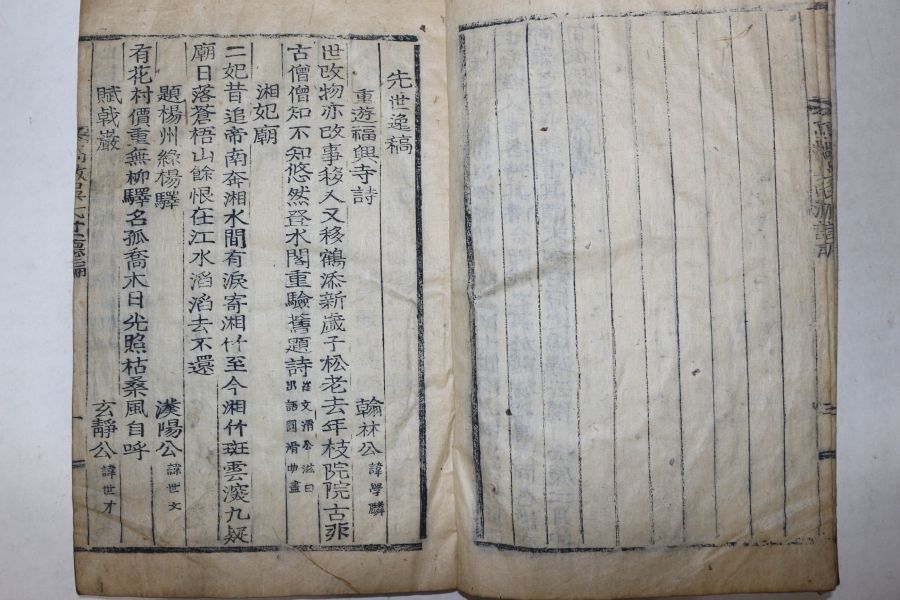 先世逸稿
重遊福興寺詩 翰林公 諱學麟
世改物亦改事移人又移鶴添新歲子松老去年枝院院古非
古僧僧知不知悠然登水閣重驗舊題詩
湘妃廟
二妃昔追帝南奔湘水間有淚寄湘竹至今湘竹斑雲深九疑
廟日落蒼梧山餘恨在江水滔滔去不還
題楊州綠楊驛 濮陽公 諱世文
有花村價重無柳驛名孤喬木日光照枯桑風自呼
賦戟巖 玄靜公 諱世才